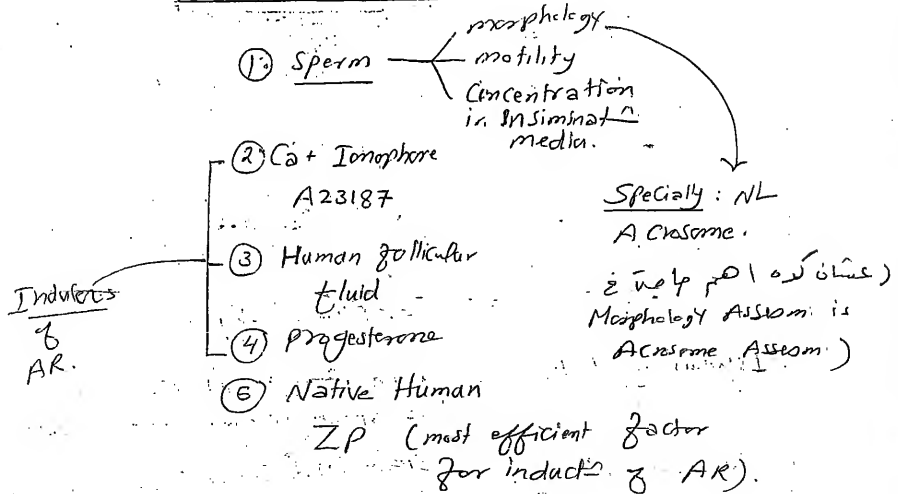 ① Sperm
morphology
motility
Concentration
in Insiminatn
media.
② Ca+ Ionophore
A23187
③ Human follicular
fluid
④ Progesterone
⑥ Native Human
ZP (most efficient factor
for inductn of AR).
Inducers
of
AR.
Specially: NL
Acrosome.
(عشان كده اهم حاجة في
Morphology Assesm. is
Acrosome Assesm.)